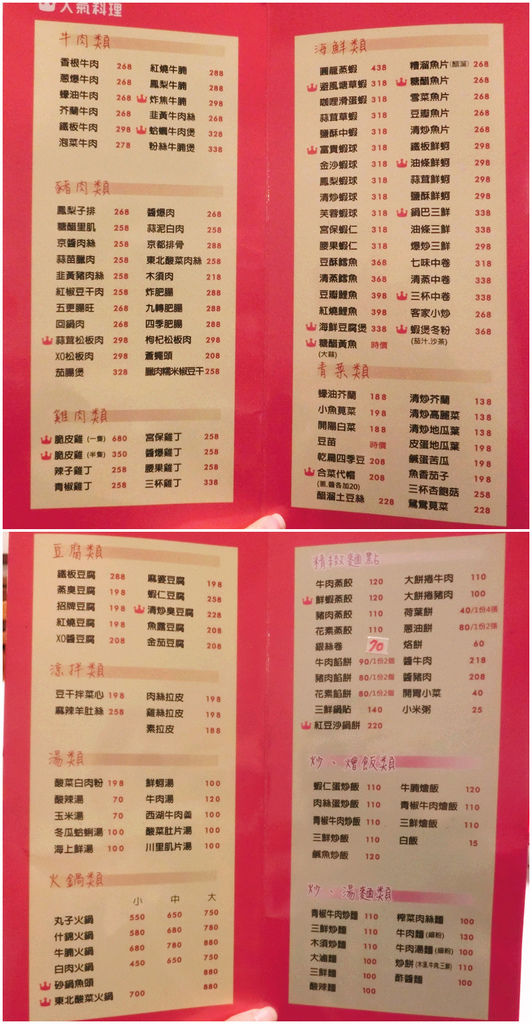 人氣料理
牛肉類
香根牛肉 268
蔥爆牛肉 268
蠔油牛肉 268
芥蘭牛肉 268
鐵板牛肉 298
泡菜牛肉 278
紅燒牛腩 288
鳳梨牛腩 288
炸焦牛腩 298
韭黃牛肉絲 268
蛤蠣牛肉煲 328
粉絲牛腩煲 338
豬肉類
鳳梨子排 268
糖醋里肌 258
京醬肉絲 258
蒜苗臘肉 258
韭黃豬肉絲 258
紅椒豆干肉 258
五更腸旺 268
回鍋肉 268
蒜茸松板肉 298
XO松板肉 298
茄腸煲 328
醬爆肉 268
蒜泥白肉 258
京都排骨 288
東北酸菜肉絲 258
木須肉 218
炸肥腸 288
九轉肥腸 288
四季肥腸 288
枸杞松板肉 298
蒼蠅頭 208
臘肉糯米椒豆干 258
雞肉類
脆皮雞 (一隻) 680
脆皮雞 (半隻) 350
辣子雞丁 258
青椒雞丁 258
宮保雞丁 258
醬爆雞丁 258
腰果雞丁 258
三杯雞丁 338
海鮮類
圓籠蒸蝦 438
避風塘草蝦 318
咖哩滑蛋蝦 318
蒜茸草蝦 318
鹽酥中蝦 318
富貴蝦球 318
金沙蝦球 318
鳳梨蝦球 318
清炒蝦球 318
芙蓉蝦球 318
宮保蝦仁 318
腰果蝦仁 318
豆酥鱈魚 368
清蒸鱈魚 368
豆瓣鯉魚 398
紅燒鯉魚 398
海鮮豆腐煲 338
糖醋黃魚 時價
(大蒜)
糟溜魚片 (醋溜) 268
糖醋魚片 268
雪菜魚片 268
豆瓣魚片 268
清炒魚片 268
鐵板鮮蚵 298
油條鮮蚵 298
蒜茸鮮蚵 298
鹽酥鮮蚵 298
鍋巴三鮮 338
油條三鮮 338
爆炒三鮮 298
七味中卷 338
清蒸中卷 338
三杯中卷 338
客家小炒 268
蝦煲冬粉 368
(茄汁.沙茶)
青菜類
蠔油芥蘭 188
小魚莧菜 198
開陽白菜 188
豆苗 時價
乾扁四季豆 208
合菜代帽 208
(蔥.醬各加20)
醋溜土豆絲 228
清炒芥蘭 138
清炒高麗菜 138
清炒地瓜葉 138
皮蛋地瓜葉 198
鹹蛋苦瓜 198
魚香茄子 198
三杯杏鮑菇 258
鴛鴦莧菜 228
豆腐類
鐵板豆腐 288
蒸臭豆腐 198
招牌豆腐 198
紅燒豆腐 198
XO醬豆腐 208
麻婆豆腐 198
蝦仁豆腐 258
清炒臭豆腐 228
魚露豆腐 208
金茄豆腐 208
涼拌類
豆干拌菜心 198
麻辣羊肚絲 258
肉絲拉皮 198
雞絲拉皮 198
素拉皮 188
湯類
酸菜白肉粉 198
酸辣湯 70
玉米湯 70
冬瓜蛤蜊湯 100
海上鮮湯 100
鮮蚵湯 100
牛肉湯 120
西湖牛肉羹 100
酸菜肚片湯 100
川里肌片湯 100
火鍋類
小 中 大
丸子火鍋 550 650 750
什錦火鍋 580 680 780
牛腩火鍋 680 780 880
白肉火鍋 450 650 750
砂鍋魚頭 880
東北酸菜火鍋 700 880
精緻麵點
牛肉蒸餃 120
鮮蝦蒸餃 120
豬肉蒸餃 110
花素蒸餃 110
銀絲卷 70
牛肉餡餅 90/1份2個
豬肉餡餅 80/1份2個
花素餡餅 80/1份2個
三鮮鍋貼 140
紅豆沙鍋餅 220
大餅捲牛肉 110
大餅捲豬肉 100
荷葉餅 40/1份4張
蔥油餅 80/1份2張
烙餅 60
醬牛肉 218
醬豬肉 208
開胃小菜 40
小米粥 25
炒、燴飯類
蝦仁蛋炒飯 110
肉絲蛋炒飯 110
青椒牛肉炒飯 110
三鮮炒飯 110
鹹魚炒飯 120
牛腩燴飯 120
青椒牛肉燴飯 110
三鮮燴飯 110
白飯 15
炒、湯麵類
青椒牛肉炒麵 110
三鮮炒麵 110
木須炒麵 110
大滷麵 100
三鮮麵 100
酸辣麵 100
榨菜肉絲麵 100
牛肉麵 (細粉) 130
牛肉湯麵 (細粉) 100
炒餅 (木須.牛肉.三鮮) 110
酢醬麵 100